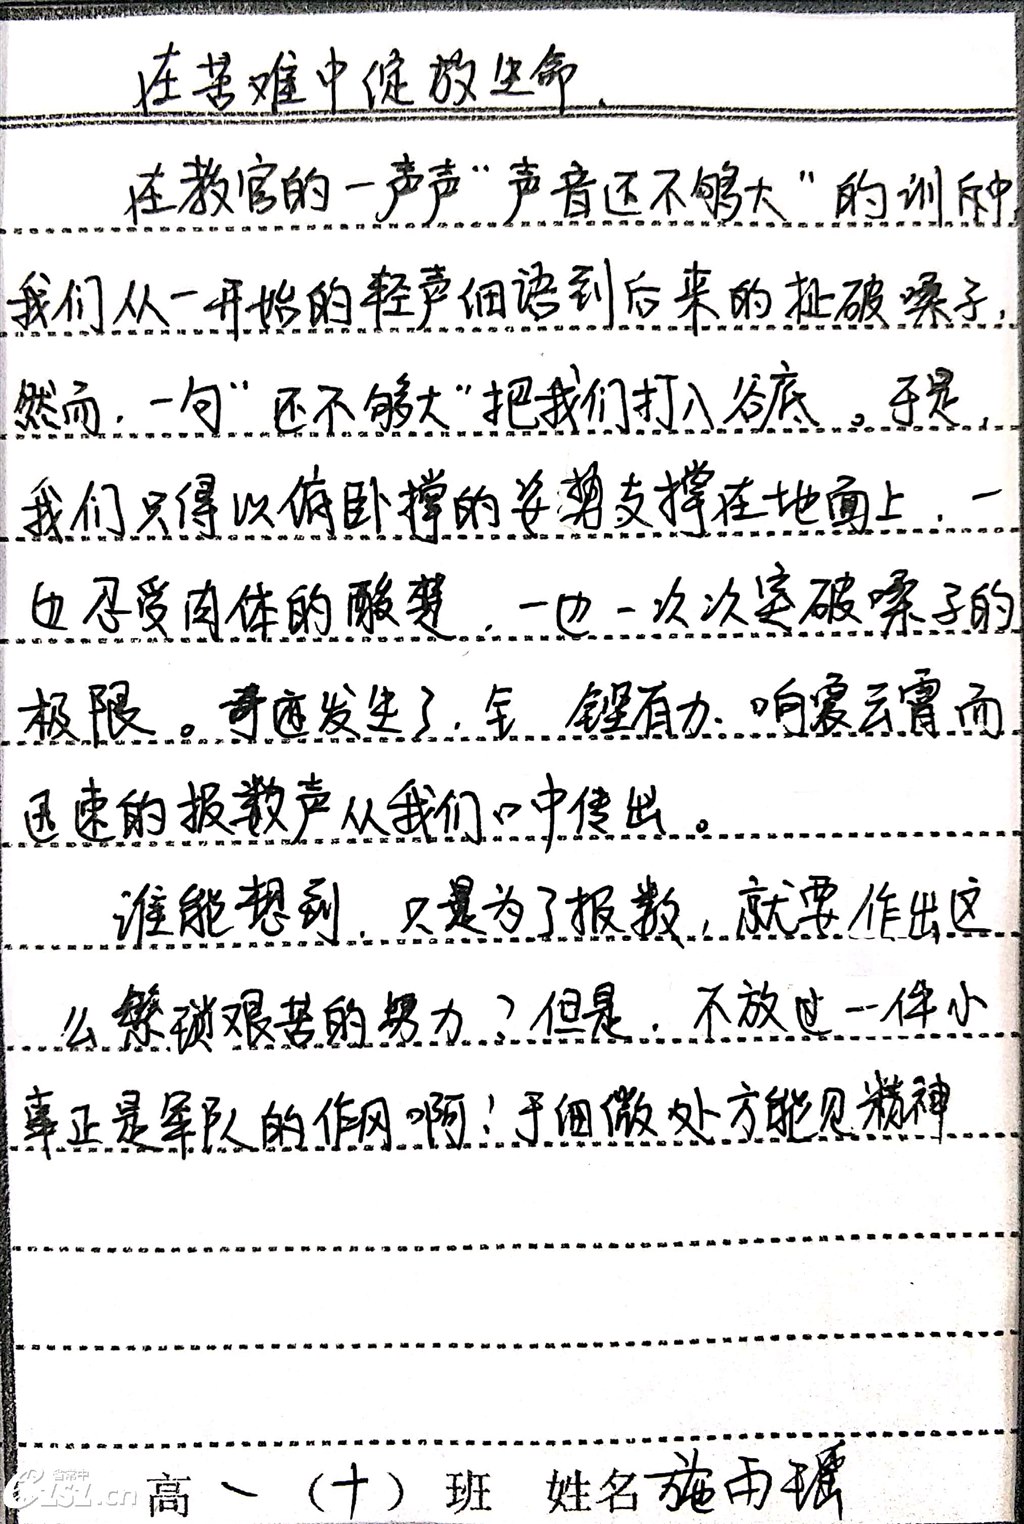 在苦难中绽放生命.
在教官的一声声“声音还不够大”的训斥中
我们从一开始的轻声细语到后来的扯破嗓子,
然而,一句“还不够大”把我们打入谷底。于是,
我们只得以俯卧撑的姿势支撑在地面上,一
边忍受肉体的酸楚,一边一次次突破嗓子的
极限。奇迹发生了,铿锵有力、响震云霄而
迅速的报数声从我们口中传出。
谁能想到,只是为了报数,就要作出这
么繁琐艰苦的努力?但是,不放过一件小
事正是军队的作风啊!于细微处方能见精神
高一(十)班 姓名施雨瑶
省常中
CZSLSZ.cn